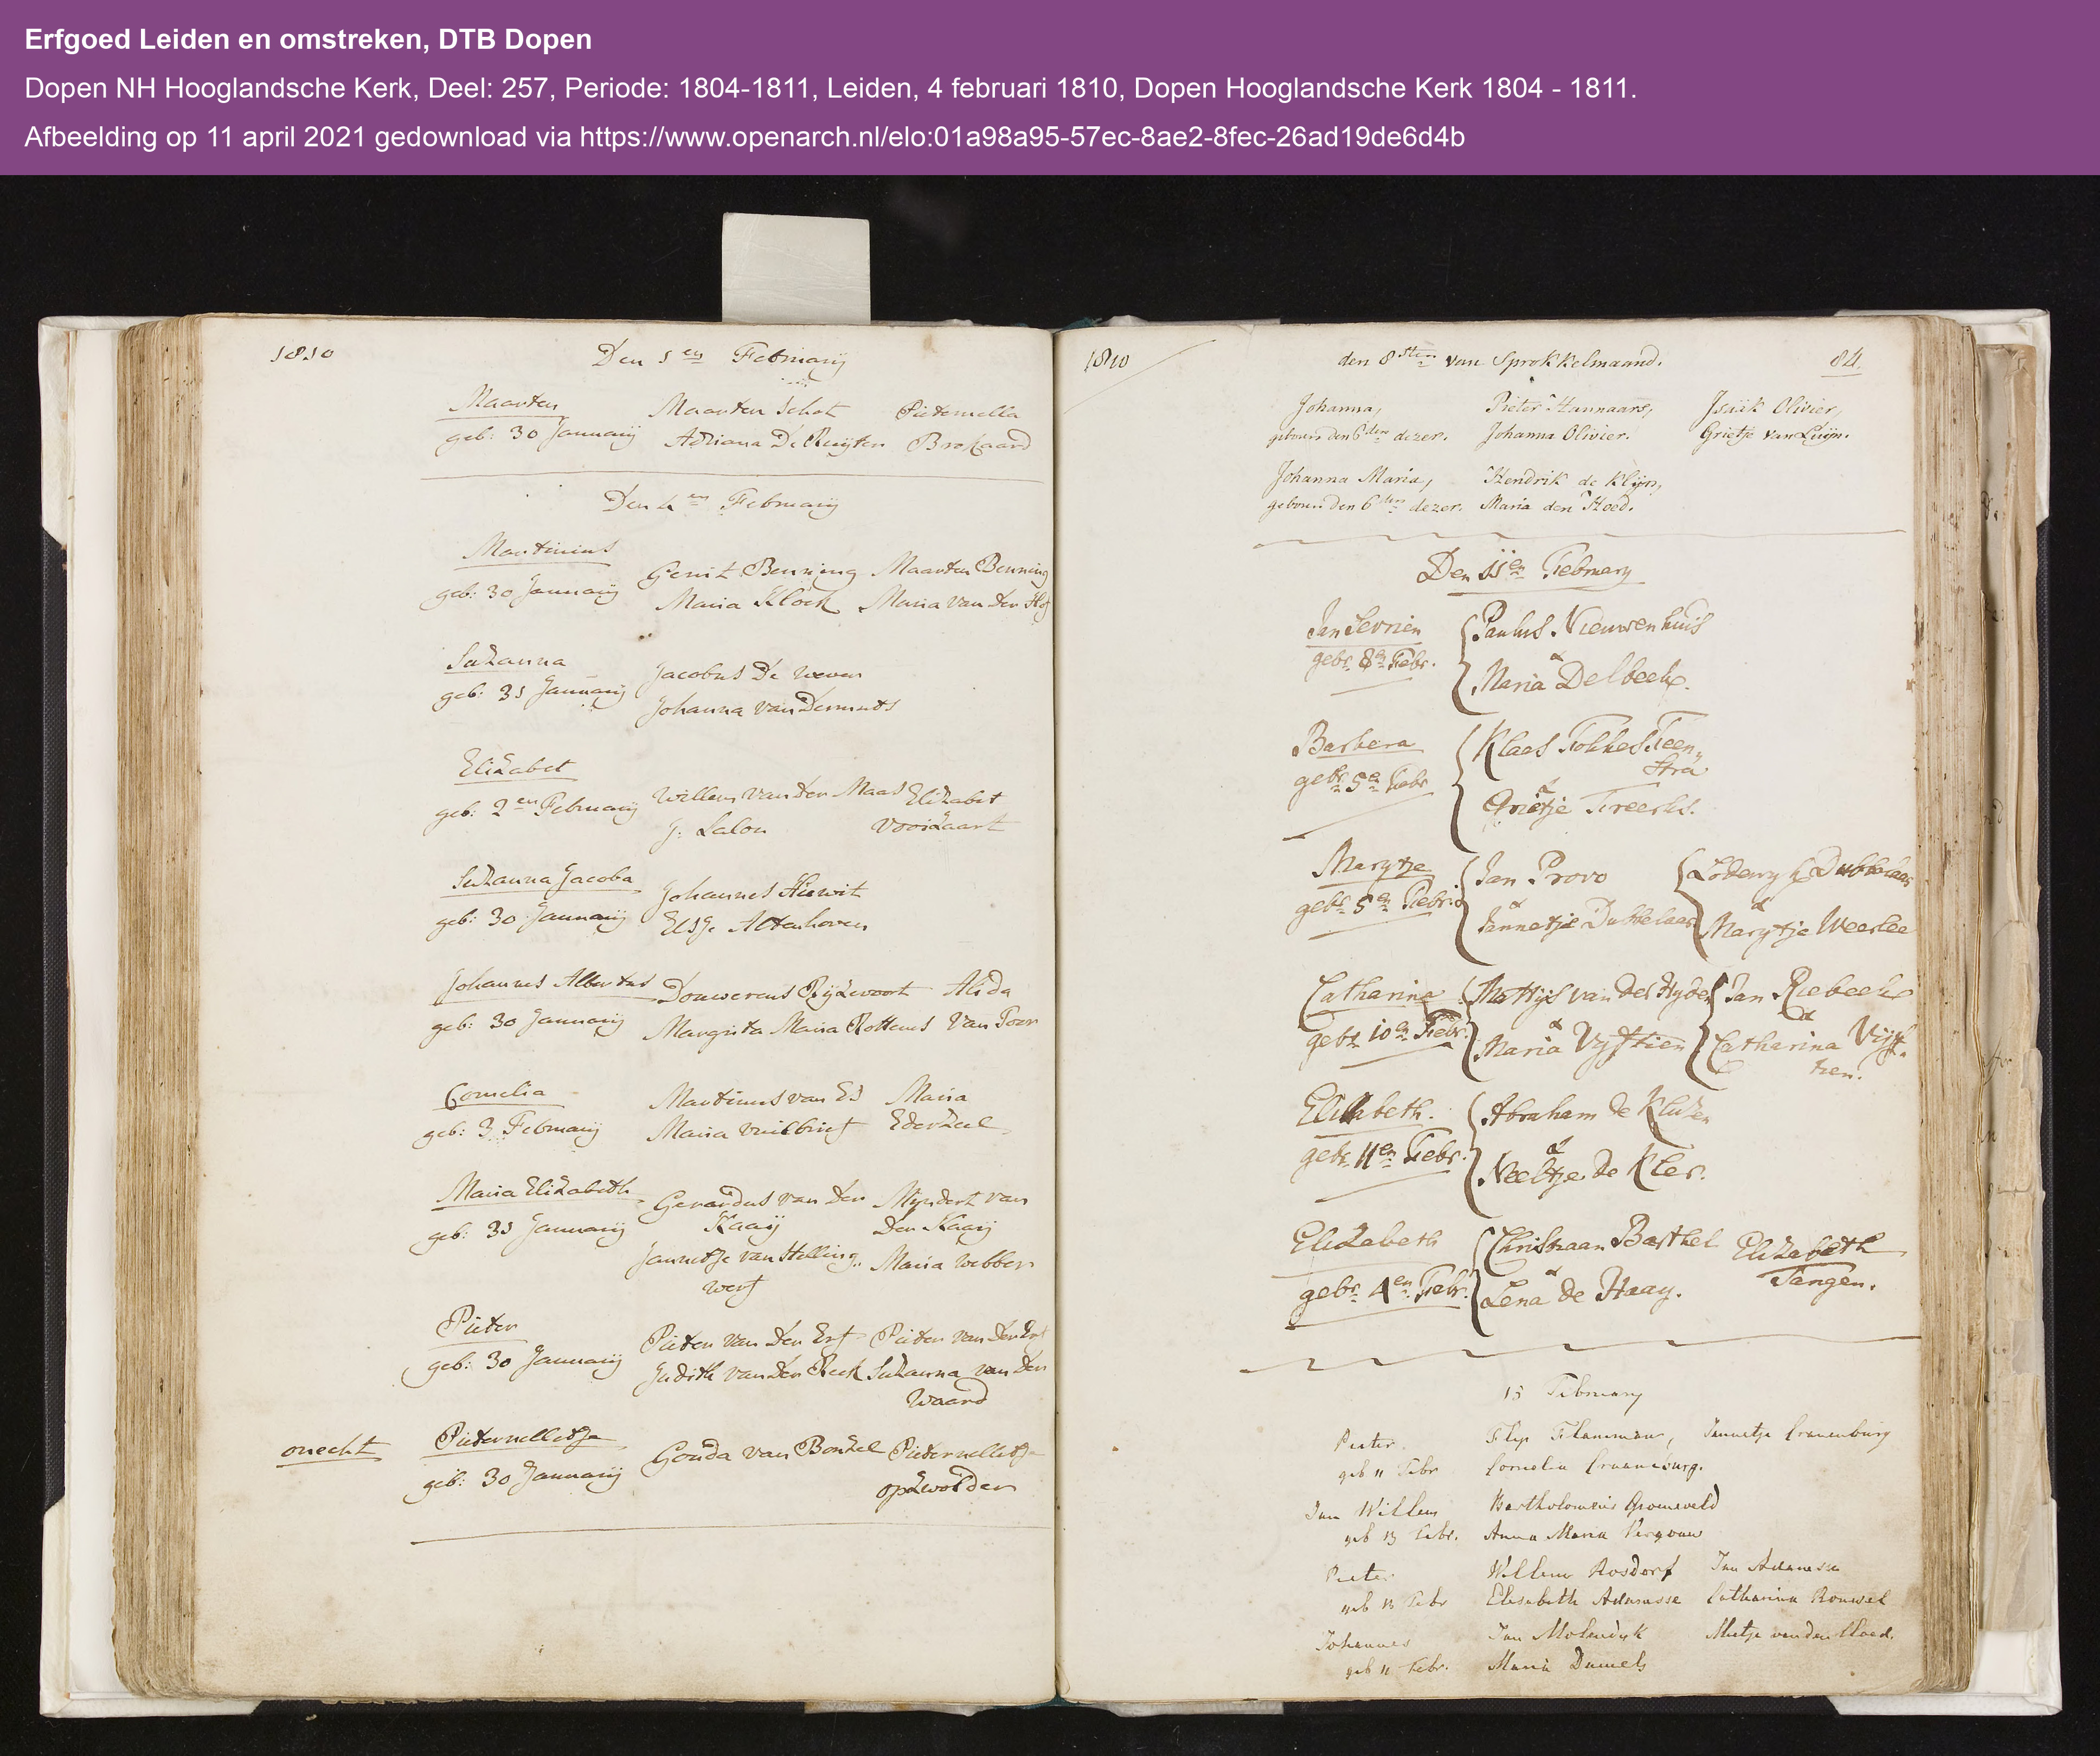 Erfgoed Leiden en omstreken, DTB Dopen
Dopen NH Hooglandsche Kerk, Deel: 257, Periode: 1804-1811, Leiden, 4 februari 1810, Dopen Hooglandsche Kerk 1804 - 1811.
Afbeelding op 11 april 2021 gedownload via https://www.openarch.nl/elo:01a98a95-57ec-8ae2-8fec-26ad19de6d4b
1810
Den 1en Februarij
Maarten Maarten Schot Pieternella
geb: 30 Januarij Adriana De Ruijter Brokaard
Den 4en Februarij
Martinus
geb: 30 Januarij Gerrit Benning Maarten Benning
Maria Klock Maria van der Hof
Suzanna
geb: 31 Januarij Jacobus De wever
Johanna van
Elizabet
geb: 2en Februarij Willem van der Maas Elizabet
J: Lalou Vooizaart
Suzanna Jacoba Johannes
geb: 30 Januarij Elsje Altenhoven
Johannes Albertus Rijzevoort Alida
geb: 30 Januarij Margrita Maria Rottems van Toor
Cornelia Martinus van Es Maria
geb: 3 Februarij Maria Vuilbrief Ederzeel
Maria Elizabeth Gerardus van der Mijndert van
geb: 31 Januarij Kaaij Der Kaaij
Jannetje van Stelling„ Maria Webber
werf
Pieter
geb: 30 Januarij Pieter van der Erf Pieter van der Erf
Judith van der Reek Suzanna van der
Waard
onecht Pieternelletje Gouda van Bonzel Pieternelletje
geb: 30 Januarij opzwolder
1810 den 8sten van Sprokkelmaand. 84.
Johanna, Pieter Hannaars, Isaäk Olivier,
geboren den 6den dezer. Johanna Olivier. Grietje van Luijn.
Johanna Maria, Hendrik de Klijn,
geboren den 6den dezer. Maria den Hoed.
Den 11en February
Jan Sevrien Paulus Nieuwenhuis
gebr 8en Febr. &
Maria Delbeek.
Barbera Klaas Fokkes Feen„
gebr 5en Febr stra
&
Grietje Freerks.
Marytje Jan Provo Lodewyk Dubbelaar
gebr 5en Febr. & &
Jannetje Dubbelaar Marytje Weerlee
Catharina Mattijs van der Hyden Jan Riebeek
gebr 10en Febr. & &
Maria Vyftien Catharina Vijf„
tien.
Elisabeth. Abraham de Kluzen
gebr 11en Febr. &
Neeltje de Kler.
Elizabeth Christiaan Barthel Elizabeth
gebr 4en Febr. & Tangen.
Lena de Haay.
15 February
Pieter Flip Flameman, Jannetje Cranenburg
geb 11 Febr Cornelia Cranenburg.
Jan Willem Bartholomeus Groeneveld
geb 13 Febr. Anna Maria Vergouw
Pieter Willem Rosdorf Jan Adamsse
geb 13 Febr Elisabeth Adamsse Catharina Rouwel
Johannes Jan Molendijk Metje van den Hoed.
geb 11 Febr. Maria Damels